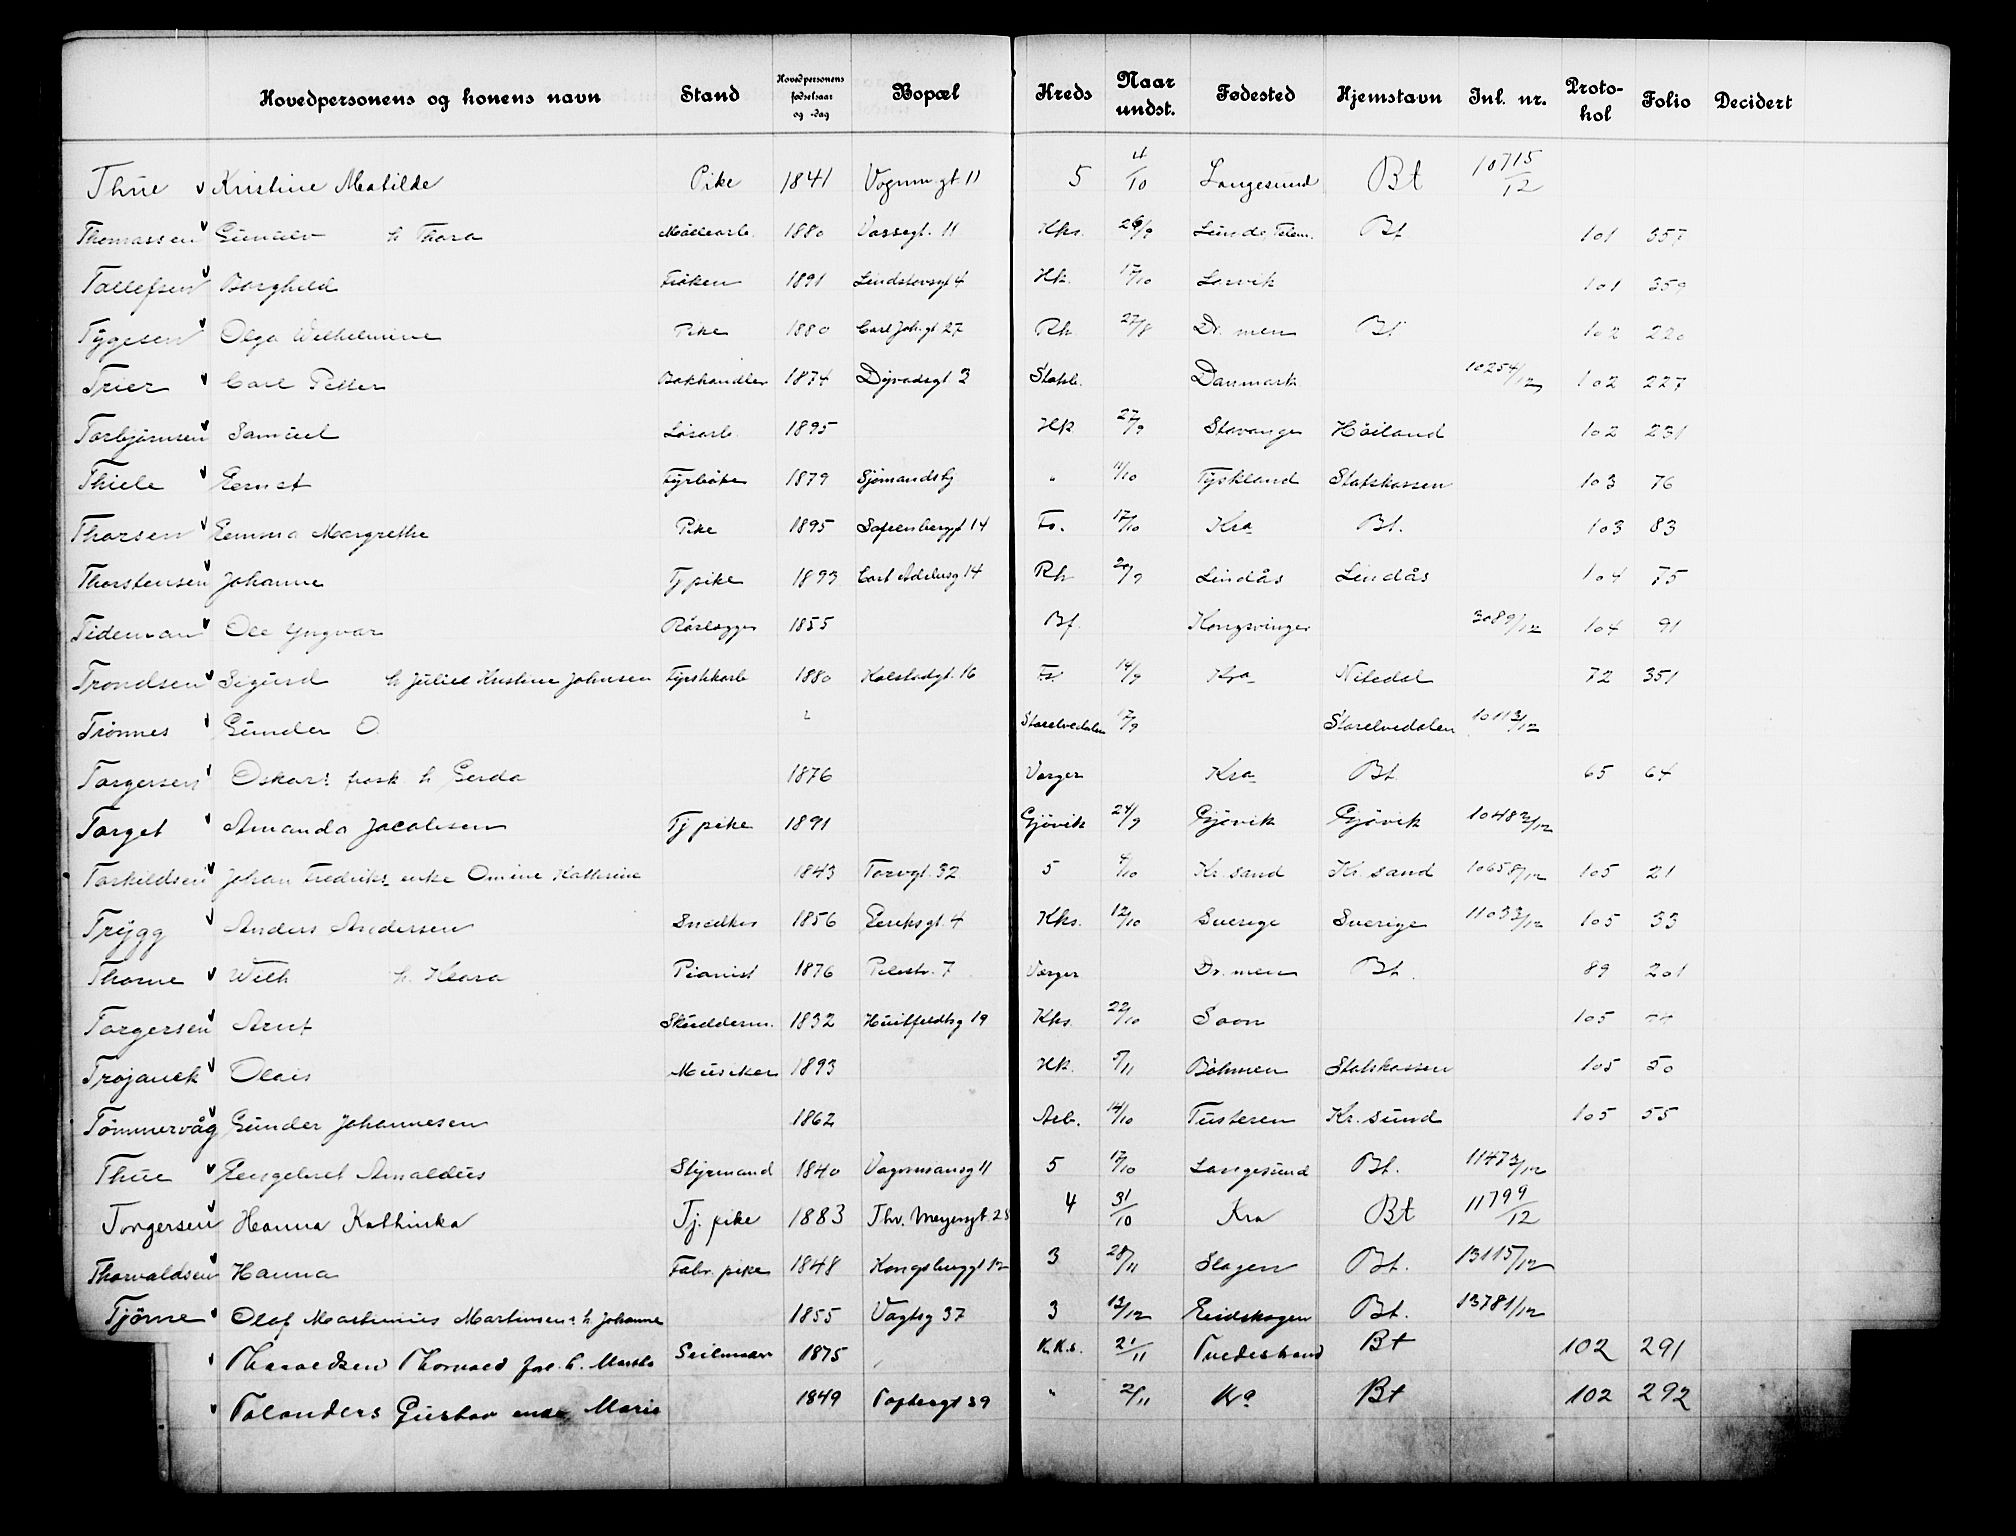 Hovedpersonens og konens navn Stand Hovedpersonens fødselsaar og -dag Bopæl Kreds Naar undst. Fødested Hjemstavn Inl. nr. Proto-kol Folio Decidert
Thue Kristine Matilde Pike 1841 Vognm.gt. 11 5 4/10 Langesund Bt 10715/12
Thomassen Gunulv h. Thora 1880 Vossegt. 11 Kks. 26/9 Lunde, Telem. Bt 101 357
Tallefsen Borghild Frøken 1891 Lindstowsgt 4 Hk. 17/10 Larvik 101 359
Tygesen Olga Wilhelmine Pike 1880 Carl Joh.gt 27 Rh. 27/8 Dr.men Bt 102 220
Trier Carl Petter Bokhandler 1874 Dyvadsgt 2 Stabk. Danmark 10254/12 102 227
Torbjørnsen Samuel Løsarb. 1895 Hk 27/9 Stavanger Høiland 102 231
Thiele Ernst Fyrbøter 1879 Sjømandshj " 11/10 Tyskland Statskassen 103 76
Thorsen Emma Margrethe Pike 1895 Sofienberggt 14 Fs. 17/10 Kra Bt. 103 83
Thorstensen Johanne Tj pike 1893 Cort Adelersg 14 Rh 20/9 Lindås Lindås 104 75
Tideman Ole Yngvar Rørlægger 1855 Bf. Kongsvinger 3089/12 104 91
Trondsen Sigurd h. Julie Kristine Johnsen Fyrstikarb 1880 Kalstadgt. 16 Fs. 14/9 Kra Nitedal 72 351
Trønnes Gunder O. Storelvedalen 17/9 Storelvedalen 10113/12
Torgersen Oskars frask. h. Gerda 1876 Varger Kra Bt. 65 64
Torget Amanda Jacobsen Tj pike 1891 Gjøvik 24/9 Gjøvik Gjøvik 10482/12
Torkildsen Johan Fredriks enke Omine Kathrine 1843 Torvgt. 32 5 4/10 Kr.sand Kr.sand 10658/12 105 21
Trygg Anders Andersen Snedker 1856 Eriksgt. 4 Kks. 12/10 Sverige Sverige 11033/12 105 33
Thorne Wilh h. Klara Pianist 1876 Pilestr. 7 Varger Dr.men Bt. 89 201
Torgersen Arnt Skrædderm. 1832 Huitfeldtsg 19 Kks. 22/10 Soon 105
Trojanek Olais Musiker 1893 Hk. 5/11 Bøhmen Statskassen 105 50
Tømmervåg Gunder Johannesen 1862 Arb. 14/10 Tusteren Kr.sund 105 55
Thue Engebret Arnaldus Styrmand 1840 Vognmansg 11 5 17/10 Langesund Bt. 11473/12
Torgersen Hanna Kathinka Tj. pike 1883 Thv. Meyersgt. 25 4 31/10 Kra Bt 11799/12
Thorvaldsen Hanna Fabr. pike 1848 Kongsberggt 12 3 28/11 Slagen Bt. 13115/12
Tjørne Olaf Martinius Martinsen h. Johanne 1855 Vagtsg 37 3 13/12 Eidskogen Bt. 13781/12
Tharaldsen Thorvald h. Martha Seilmaker 1875 " K.Ks. 21/11 Tvedestrand Bt 102 291
Tolanders Gustav enke Marie 1849 Toftesgt 39 " 2/11 Kra Bt 102 292